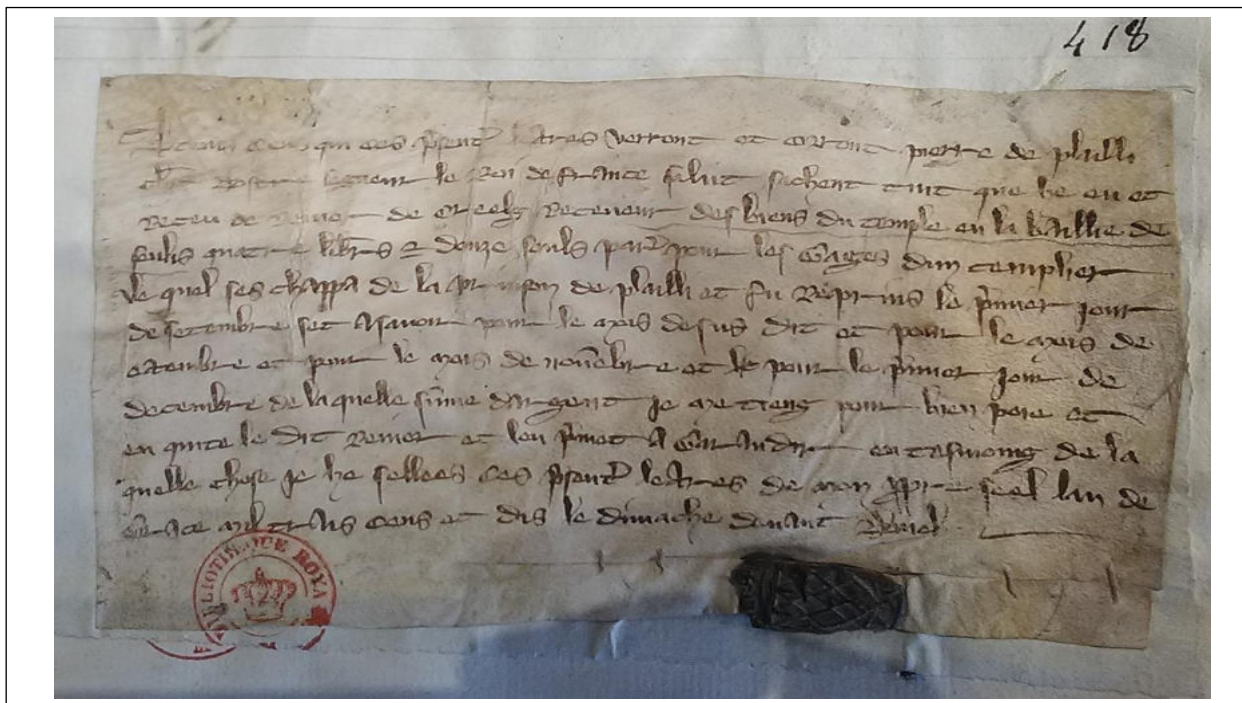 418
A touz ceus qui ces psentes letres verront et orront pierre de plailli
nostre segneur le Roi de france salut sachent tuit que he eu et
Receu de Renier de Creelg Receveur des biens du temple en la baillie de
senlis quatre libres et douze souls par pour les Gages dun templier
le quel ses chappa de la prison de plailli et fu Repris le pmier jour
de setembre set Asavoir pour le mois desus dit et pour le mois de
octembre et pour le mois de novebre et pour le pmier jour de
decembre de laquelle sume dargent je me tieng pour bien poie et
en quite le dit Renier et leu pmet A Garandir en tesmoing de la
quelle chose je he sellees ces psentes letres de mon ppre seel lan de
Grace mil trois cens et dis le dimache devant
BIBLIOTHEQUE ROYA